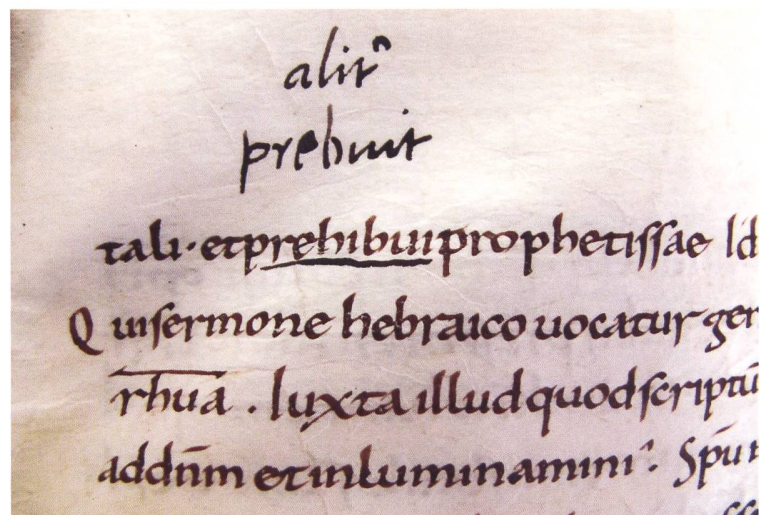 alit᷑
prebuit
tali· etprehibuiprophetissae Id
Quisermone hebraico uocatur ger
rhua̅ . Iuxtaillud quodscriptū
addn̄m etinluminamini· Sp̄u